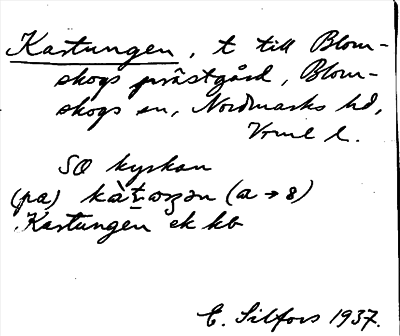 Kastungen, t till Blom-
skogs prästgård, Blom-
skogs sn, Nordmarks hd,
Vrml l.
SO kyrkan
(pa) kàt̠aŋən (a → 8)
Kastungen ek kb
E. Silfors 1937.